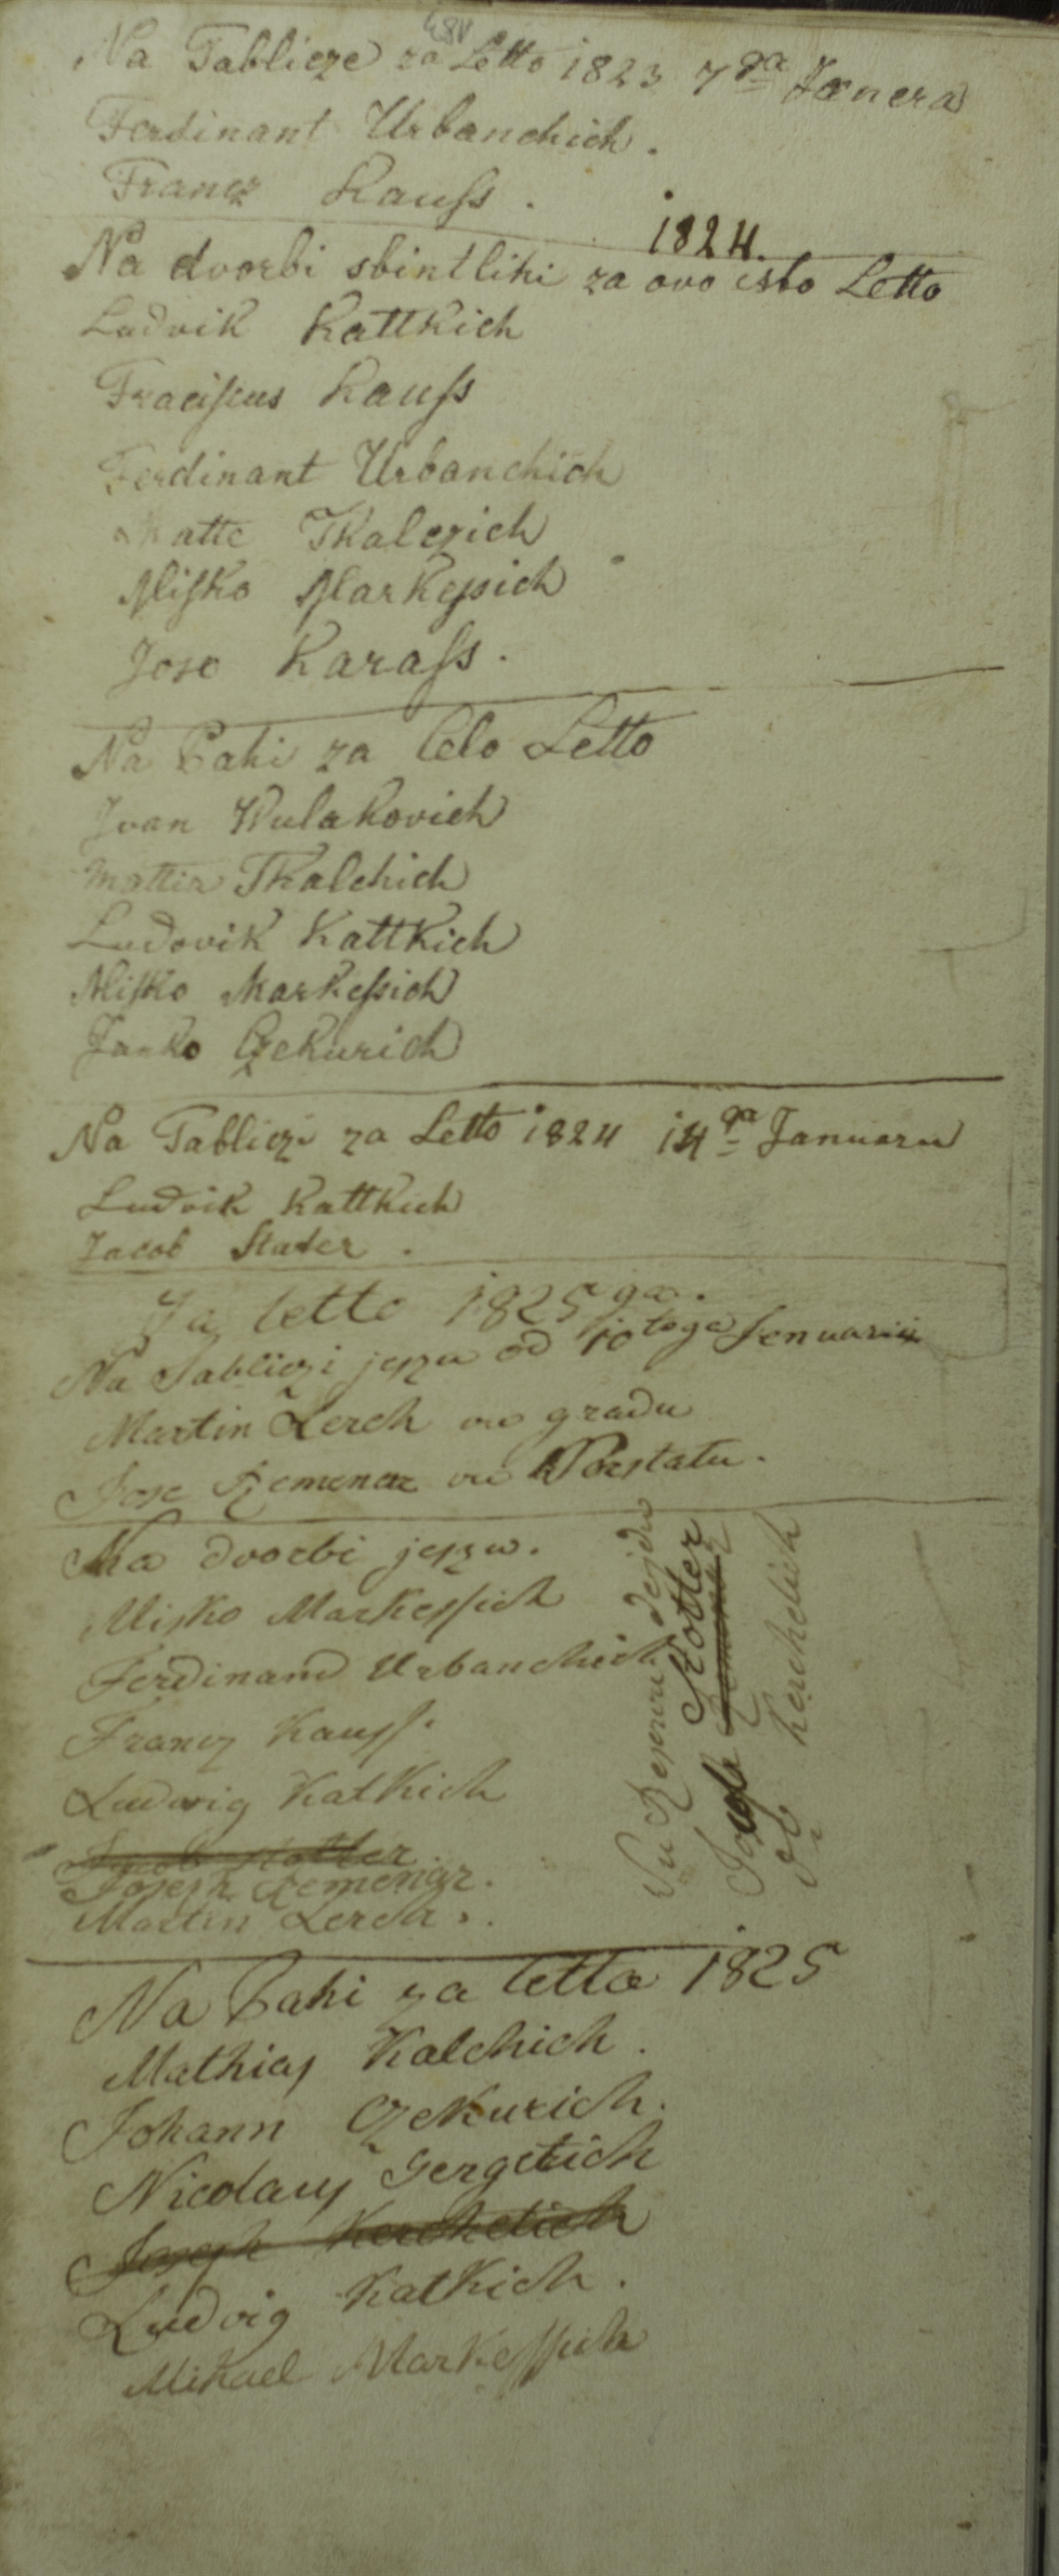 48v
Na Tablicze za Letto 1823 7ga Jenera
Ferdinant Urbanchich.
Francz Kauſs.
1824.
Na dvorbi sbintliki za ovo isto Letto
Ludvik Kattkich
Fraciſcus Kauſs
Ferdinant Urbanchich
Matte Tkalczich
Miſko Markeſsich
Jose Karaſs.
Na Pahi za Celo Letto
Ivan Vulakovich
Mattia Tkalchich
Ludovik Kattkich
Miſko Markeſsich
Janko Czekurich
Na Tabliczi za Letto 1824 14ga Januara
Ludvik Kattkich
Jacob Stader.
Za letto 1825ga.
Na Tabliczi jeszu od 10toga Jenuaria
Martin Lerch vu gradu
Jose Remenar vu Porstatu.
Na dvorbi jeszu.
Miſko Markeſsich
Ferdinand Urbanchich
Francz Kauſs.
Ludwig Katkich
Jacob Stotter
Joseph Remenar.
Martin Lerch.
Stotter
Kerchelich
Na Pahi za Letto 1825
Mathias Kalchich.
Johann Czekurich.
Nicolaus Gergetich
Joseph Kerchelich
Ludvig Katkich.
Mikael Markeſsich